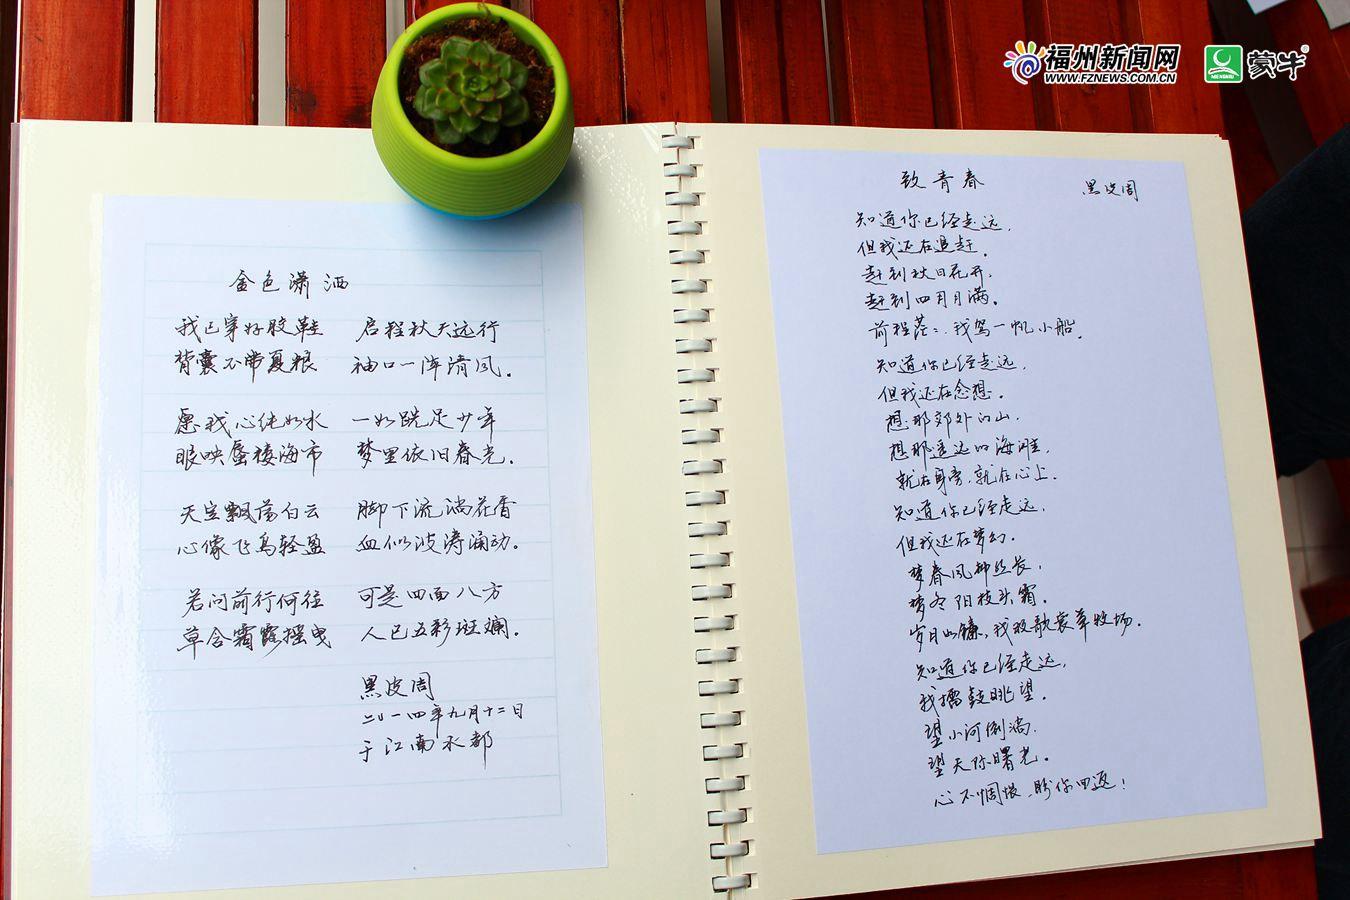 福州新闻网
WWW.FZNEWS.COM.CN
MENGNIU
蒙牛
金色潇洒
我已穿好胶鞋 启程秋天远行
背囊不带夏粮 袖口一阵清风。
愿我心纯如水 一如跣足少年
眼映蜃楼海市 梦里依旧春光。
天空飘荡白云 脚下流淌花香
心像飞鸟轻盈 血似波涛涌动。
若问前行何往 可是四面八方
草含霜露摇曳 人已五彩斑斓。
黑皮周
二〇一四年九月十二日
于江南水都
致青春
黑皮周
知道你已经走远,
但我还在追赶。
赶到秋日花开,
赶到四月月满。
前程茫茫,我驾一帆小船。
知道你已经走远,
但我还在念想。
想那郊外的山,
想那遥远的海滩,
就在身旁,就在心上。
知道你已经走远,
但我还在梦幻。
梦春风柳丝长,
梦冬阳枝头霜。
岁月如镰,我放歌衰草牧场。
知道你已经走远,
我擂鼓眺望。
望小河倒淌,
望天际曙光。
心不惆怅,盼你回返!